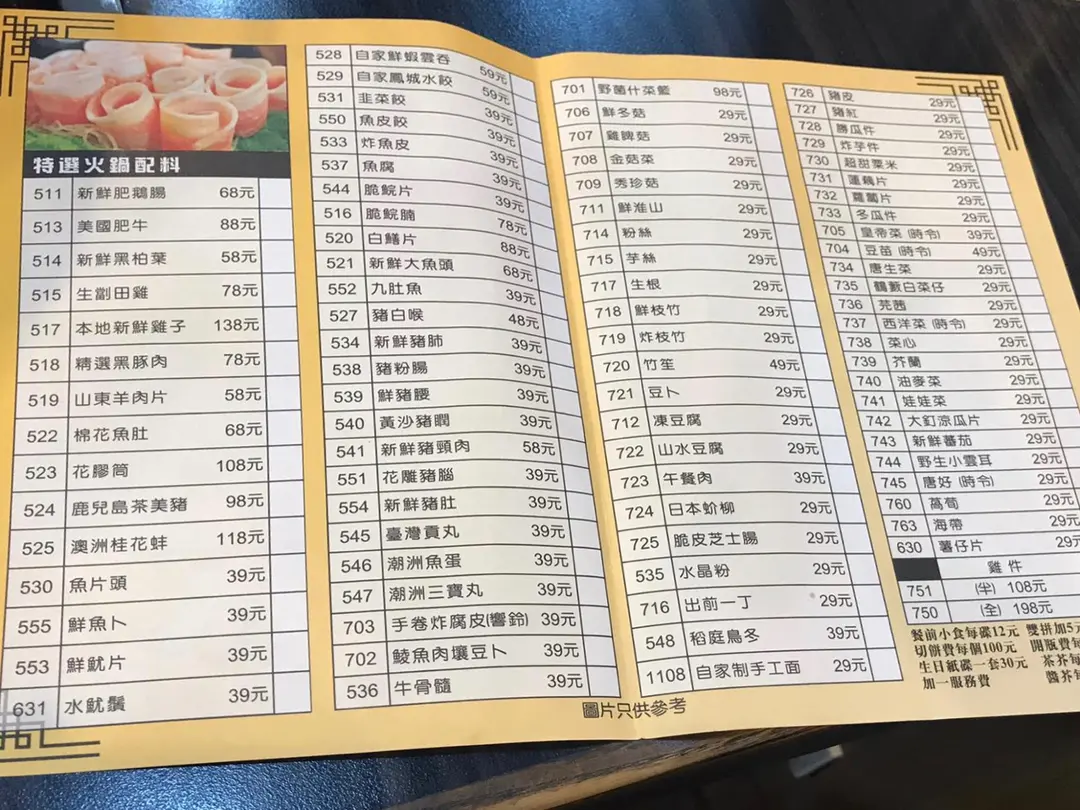 特選火鍋配料
511 新鮮肥鵝腸 68元
513 美國肥牛 88元
514 新鮮黑柏葉 58元
515 生劏田雞 78元
517 本地新鮮雞子 138元
518 精選黑豚肉 78元
519 山東羊肉片 58元
522 棉花魚肚 68元
523 花膠筒 108元
524 鹿兒島茶美豬 98元
525 澳洲桂花蚌 118元
530 魚片頭 39元
555 鮮魚卜 39元
553 鮮魷片 39元
631 水魷鬚 39元
528 自家鮮蝦雲吞 59元
529 自家鳳城水餃 59元
531 韭菜餃 39元
550 魚皮餃 39元
533 炸魚皮 39元
537 魚腐 39元
544 脆鯇片 39元
516 脆鯇腩 78元
520 白鱔片 88元
521 新鮮大魚頭 68元
552 九肚魚 39元
527 豬白喉 48元
534 新鮮豬肺 39元
538 豬粉腸 39元
539 鮮豬腰 39元
540 黃沙豬膶 39元
541 新鮮豬頸肉 58元
551 花雕豬腦 39元
554 新鮮豬肚 39元
545 臺灣貢丸 39元
546 潮洲魚蛋 39元
547 潮洲三寶丸 39元
703 手卷炸腐皮(響鈴) 39元
702 鯪魚肉壤豆卜 39元
536 牛骨髓 39元
701 野菌什菜籃 98元
706 鮮冬菇 29元
707 雞髀菇 29元
708 金菇菜 29元
709 秀珍菇 29元
711 鮮淮山 29元
714 粉絲 29元
715 芋絲 29元
717 生根 29元
718 鮮枝竹 29元
719 炸枝竹 29元
720 竹笙 49元
721 豆卜 29元
712 凍豆腐 29元
722 山水豆腐 29元
723 午餐肉 39元
724 日本蚧柳 29元
725 脆皮芝士腸 29元
535 水晶粉 29元
716 出前一丁 29元
548 稻庭烏冬 39元
1108 自家制手工面 29元
726 豬皮 29元
727 豬紅 29元
728 勝瓜件 29元
729 炸芋件 29元
730 超甜粟米 29元
731 蓮藕片 29元
732 蘿蔔片 29元
733 冬瓜件 29元
705 皇帝菜 (時令) 39元
704 豆苗 (時令) 49元
734 唐生菜 29元
735 鶴藪白菜仔 29元
736 芫茜 29元
737 西洋菜 (時令) 29元
738 菜心 29元
739 芥蘭 29元
740 油麥菜 29元
741 娃娃菜 29元
742 大釘涼瓜片 29元
743 新鮮蕃茄 29元
744 野生小雲耳 29元
745 唐好 (時令) 29元
760 萵筍 29元
763 海帶 29元
630 薯仔片 29元
雞件
751 (半) 108元
750 (全) 198元
餐前小食每碟12元 雙拼加5元
切餅費每個100元 開瓶費每
生日紙碟一套30元 茶芥每
加一服務費 醬芥每
圖片只供參考